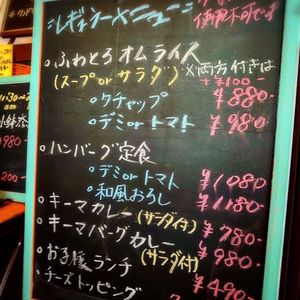 レギュラーメニュー
使用不可です
・ふわとろオムライス
(スープorサラダ) ※両方付きは
+¥100-
・ケチャップ ¥880-
・デミorトマト ¥980-
・ハンバーグ定食
・デミorトマト ¥1080-
・和風おろし ¥1180-
・キーマカレー (サラダ付) ¥780-
・キーマバーグカレー
(サラダ付) ¥980-
・お子様ランチ ¥490-
・チーズトッピング